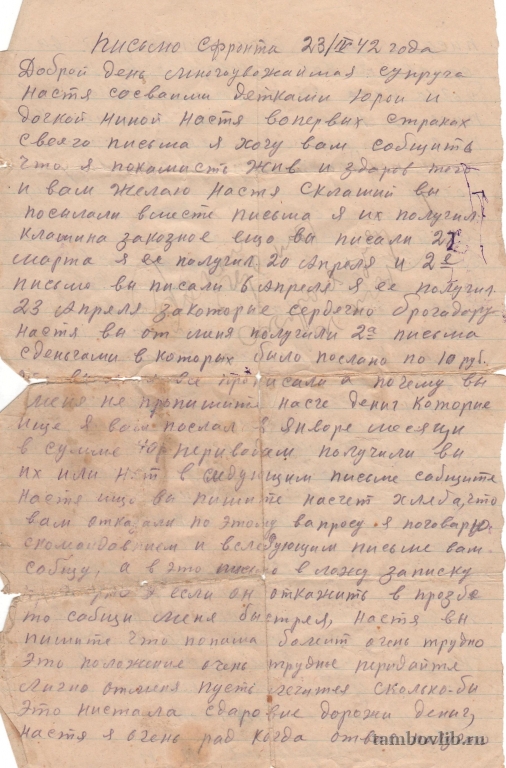 Письмо сфронта 23/IV 42 года
Доброй день многоуважайшая супруга
Настя сосваими детками Юрои и
дочкой Ниной Настя вопервых страках
свояго письма я хочу вам сабщить
что я покамисть жив и здаров того
и вам желаю Настя Склаший вы
посылали вместе письма я их получил
Клашина законое ещо вы писали 27
марта я ее получил 20 Апреля и 2е
письмо вы писали 6 Апреля я ее получил
23 Апреля закоторые сердечно брогадорю
Настя вы от миня получили 2а письма
сденьгами в которых было послано по 10 руб.
все прописали а почему вы
меня не пропишите насче дениг которые
ище я вам послал в Январе месяци
в сумме переводам получили вы
их или нет в сидующим письме сабщите
Настя ищо вы пишите насчет хляба, что
вам отказали по этому вапросу я поговарю
скомандавнием и вследующим письме вам
сабщу, а в это вложу записку
если он откажить в прозбе
то сабщи меня быстрея, Настя вы
пишите что попаша болеит очень трудно
Это положение очень трудные перидайтя
лично отменя пусть личится сколько-бы
это нистала сдаровие дорожи дениг,
Настя я очень рад когда ответ получаю
tambovlib.ru